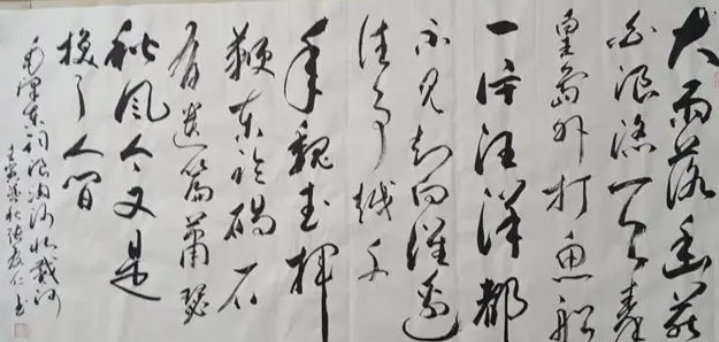 大雨落幽燕
白浪滔天秦
皇岛外打鱼船
一片汪洋都
不见知向谁边
往事越千
年魏武挥
鞭东临碣石
有遗篇萧瑟
秋风今又是
换了人间
毛泽东词浪淘沙北戴河
壬寅暮秋张仁书